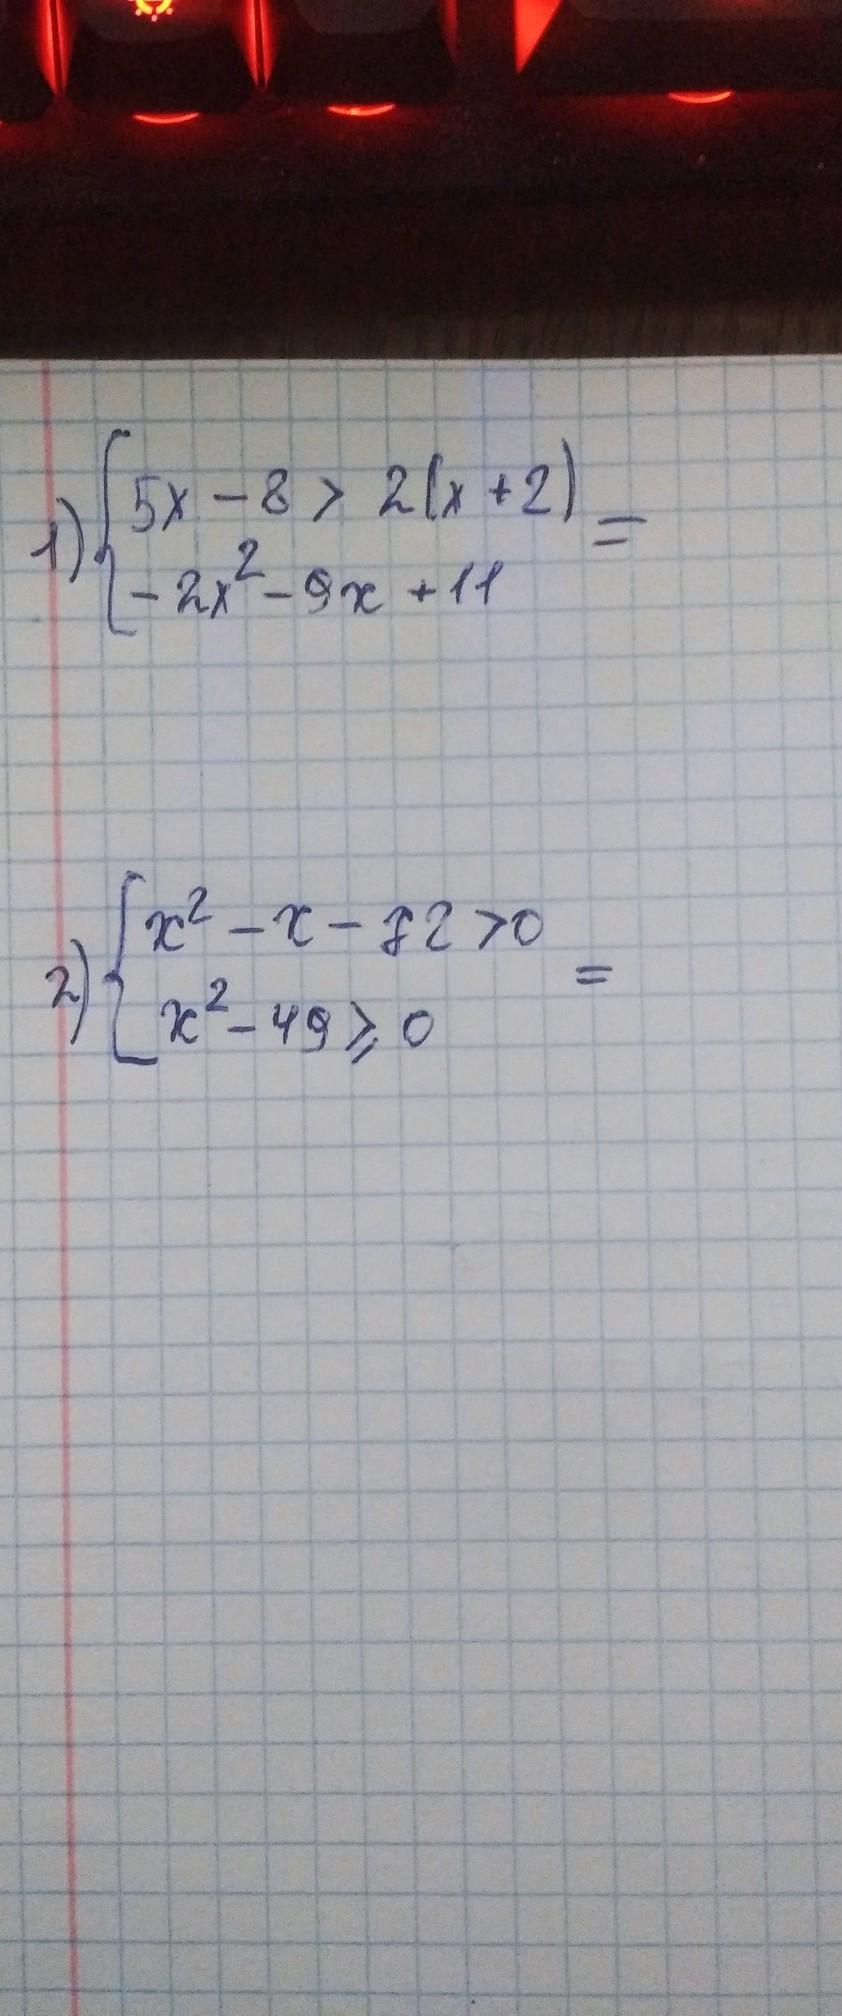 1) { 5x - 8 > 2(x + 2) =
- 2x² - 9x + 11
2) { x² - x - 72 > 0 =
x² - 49 ⩾ 0